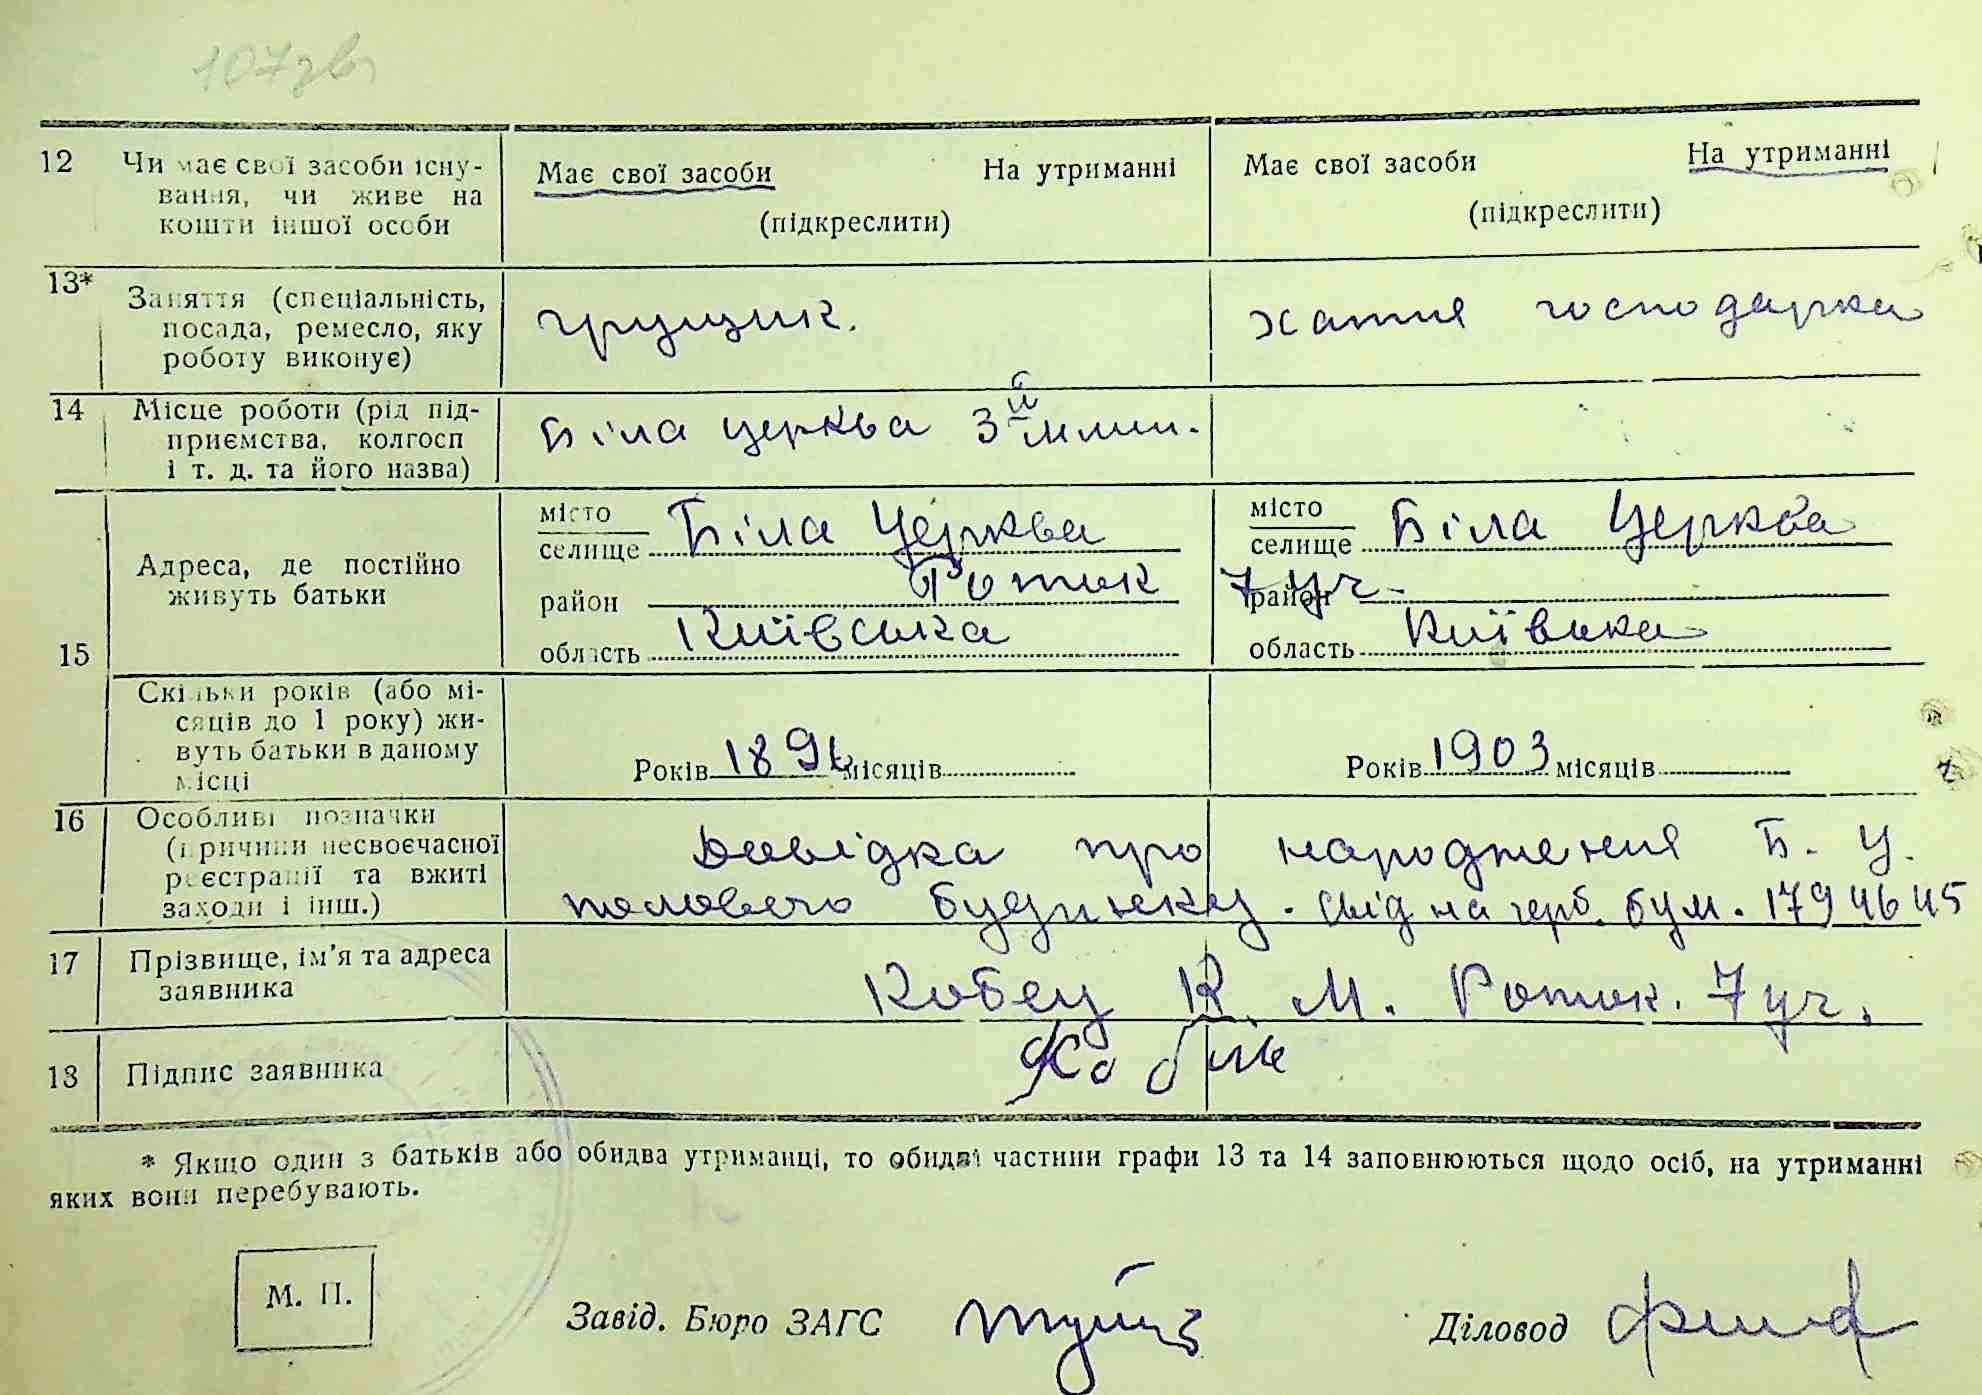 107зв
12 Чи має свої засоби існу- Має свої засоби На утриманні Має свої засоби На утриманні
вання, чи живе на
кошти іншої особи (підкреслити) (підкреслити)
13* Заняття (спеціальність,
посада, ремесло, яку грущик. хатня господарка
роботу виконує)
14 Місце роботи (рід під-
приємства, колгосп Біла церква 3й млин.
і т. д. та його назва)
15 Адреса, де постійно
живуть батьки
місто Біла Церква місто Біла Церква
селище селище
район Роток 7 уч. район
область Київська область Київська
Скільки років (або мі-
сяців до 1 року) жи-
вуть батьки в даному Років 1896 місяців Років 1903 місяців
місці
16 Особливі позначки
(причини несвоєчасної Довідка про народження Б. Ц.
реєстрації та вжиті пологового будинку. свід на герб. бум. 1794645
заходи і інш.)
17 Прізвище, ім'я та адреса Кобец К. М. Роток. 7 уч.
заявника
18 Підпис заявника
* Якщо один з батьків або обидва утриманці, то обидві частини графи 13 та 14 заповнюються щодо осіб, на утриманні
яких вони перебувають.
М. П. Завід. Бюро ЗАГС Діловод